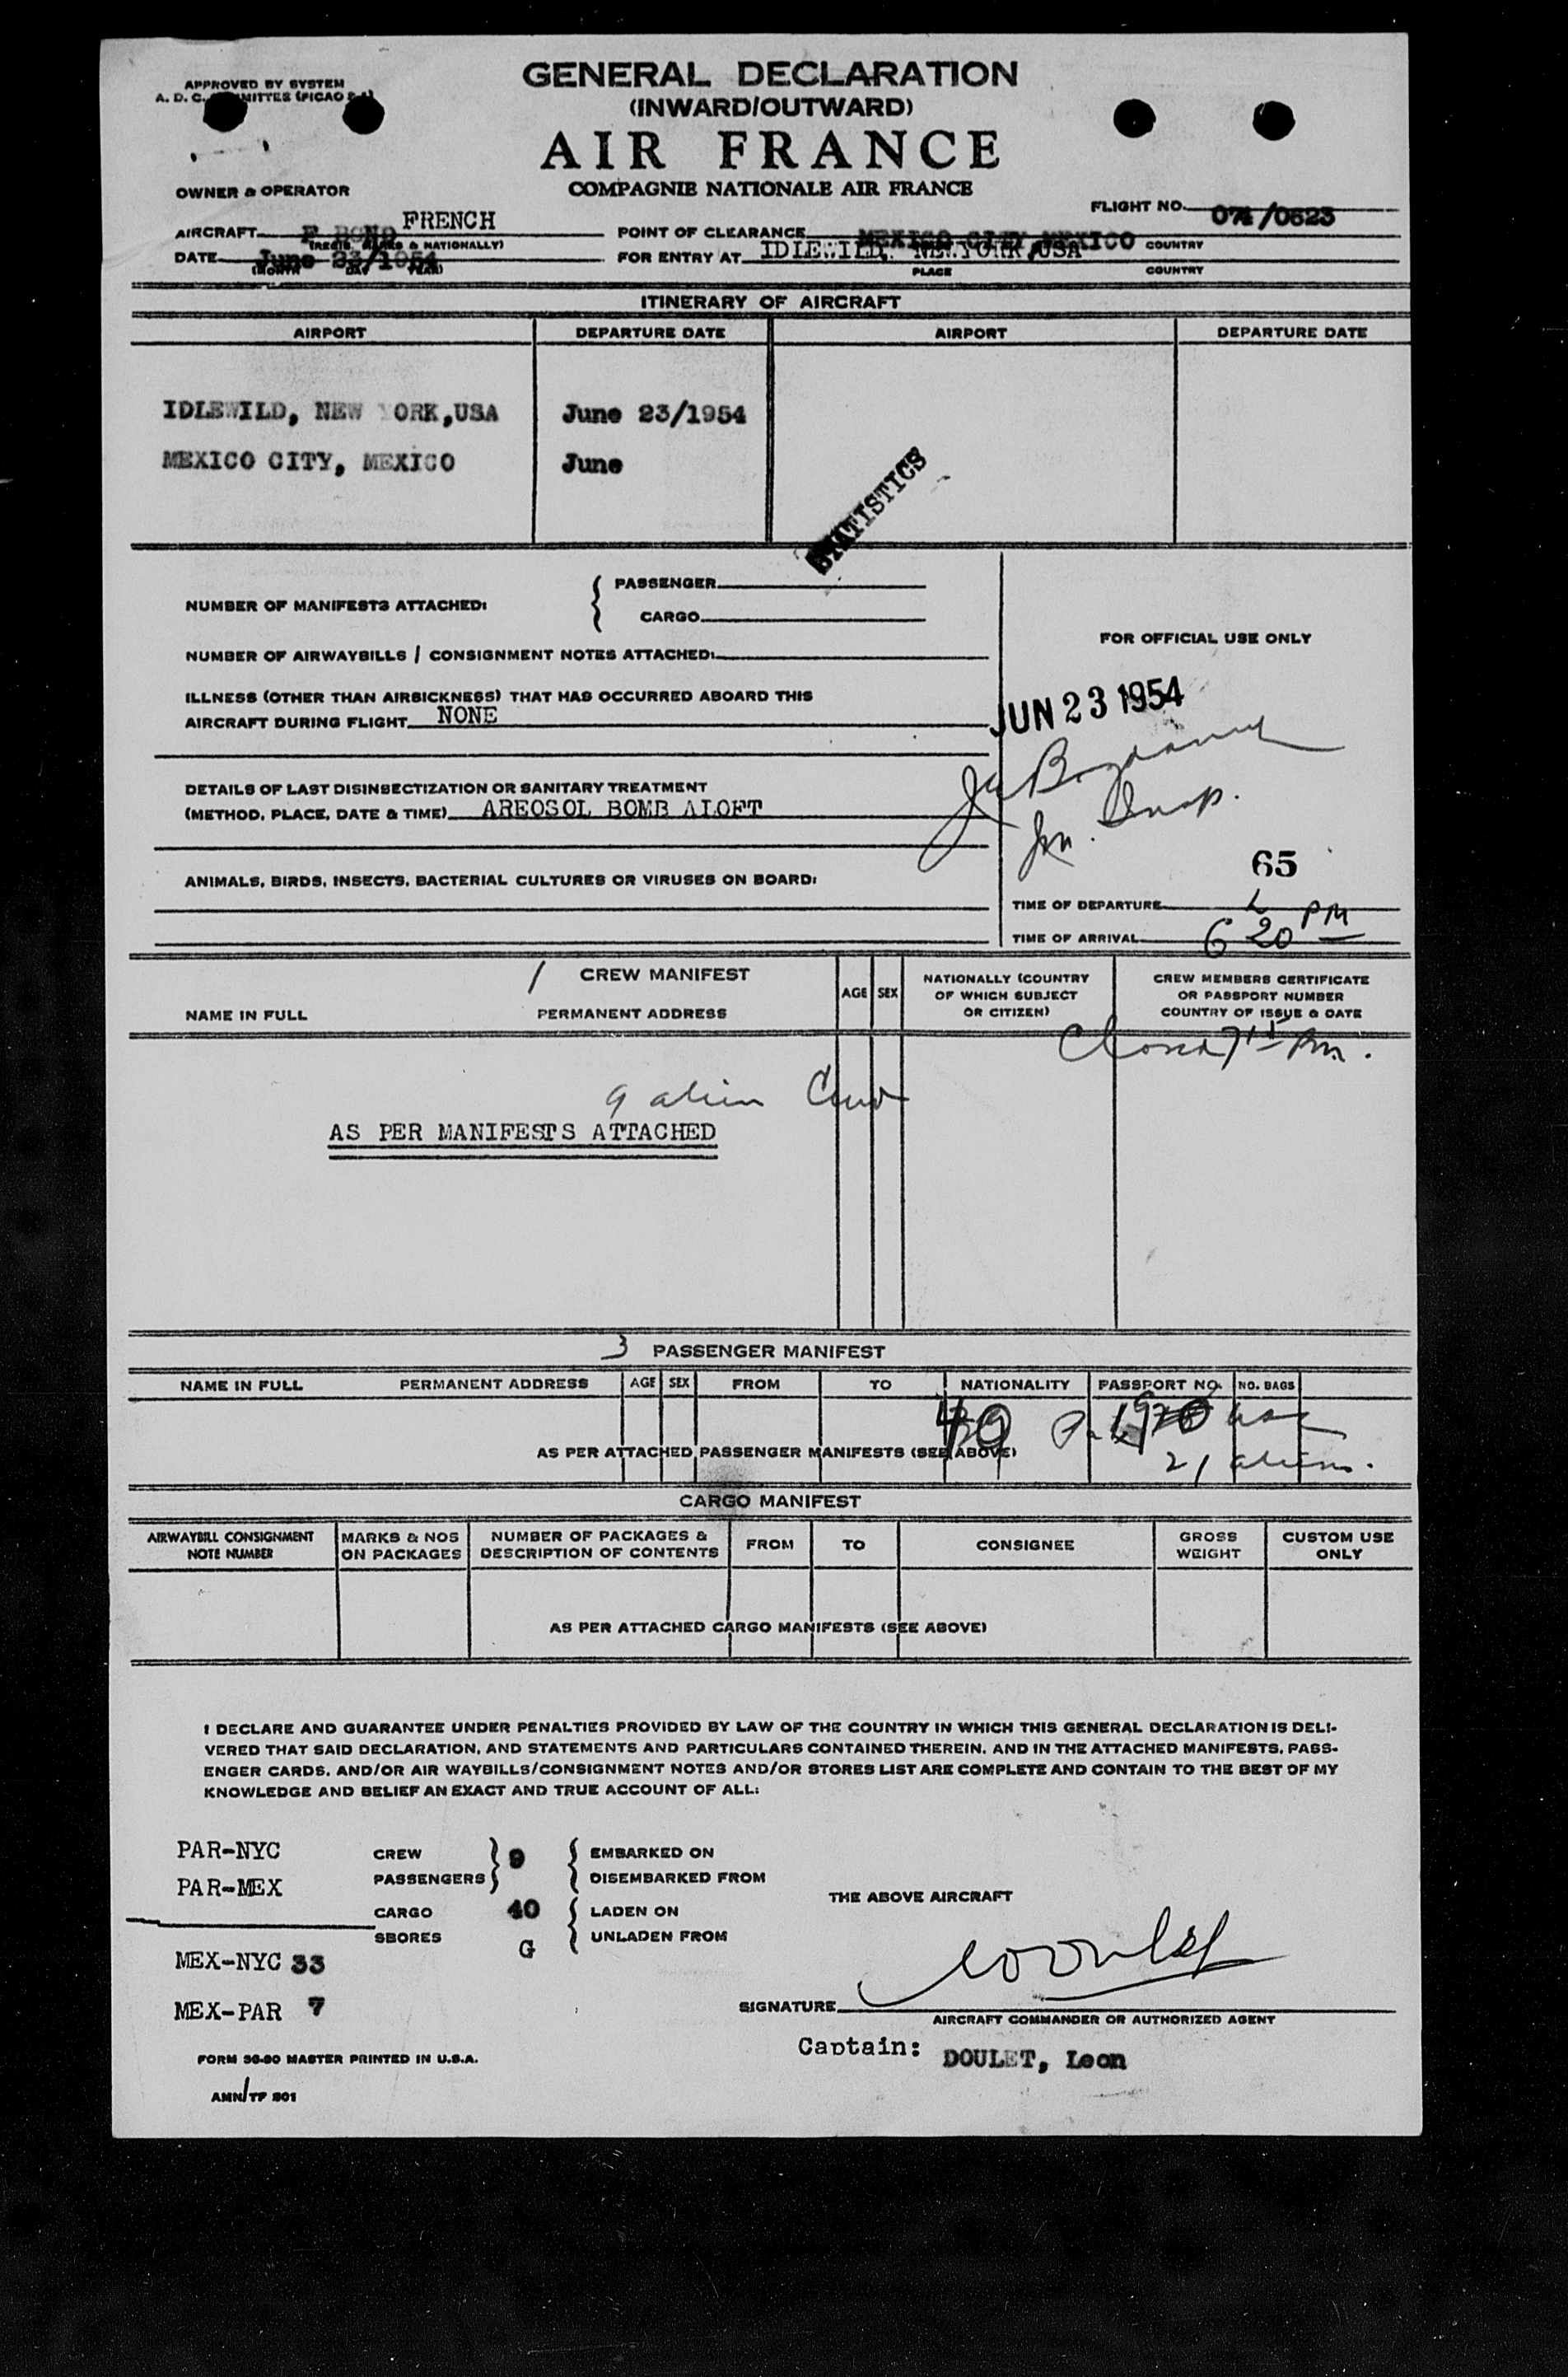 APPROVED BY SYSTEM
A. D. C.
GENERAL DECLARATION
(INWARD/OUTWARD)
AIR FRANCE
COMPAGNIE NATIONALE AIR FRANCE
OWNER & OPERATOR
FLIGHT NO. /0623
AIRCRAFT FRENCH
(REGIS. MARKS & NATIONALLY)
POINT OF CLEARANCE MEXICO CITY MEXICO COUNTRY
DATE June 23/1954
(MONTH DAY YEAR)
FOR ENTRY AT IDLEWILD, NEW YORK, USA
PLACE COUNTRY
ITINERARY OF AIRCRAFT
AIRPORT DEPARTURE DATE AIRPORT DEPARTURE DATE
IDLEWILD, NEW YORK,USA June 23/1954
MEXICO CITY, MEXICO June
STATISTICS
NUMBER OF MANIFESTS ATTACHED: PASSENGER
CARGO
FOR OFFICIAL USE ONLY
NUMBER OF AIRWAYBILLS / CONSIGNMENT NOTES ATTACHED:
ILLNESS (OTHER THAN AIRSICKNESS) THAT HAS OCCURRED ABOARD THIS
AIRCRAFT DURING FLIGHT NONE
JUN 23 1954
DETAILS OF LAST DISINSECTIZATION OR SANITARY TREATMENT
(METHOD, PLACE, DATE & TIME) AREOSOL BOMB ALOFT
65
ANIMALS, BIRDS, INSECTS, BACTERIAL CULTURES OR VIRUSES ON BOARD:
TIME OF DEPARTURE
TIME OF ARRIVAL 6 20 PM
/ CREW MANIFEST
NAME IN FULL PERMANENT ADDRESS
AGE SEX
NATIONALLY (COUNTRY
OF WHICH SUBJECT
OR CITIZEN)
CREW MEMBERS CERTIFICATE
OR PASSPORT NUMBER
COUNTRY OF ISSUE & DATE
9 alien Crew
AS PER MANIFESTS ATTACHED
3 PASSENGER MANIFEST
NAME IN FULL PERMANENT ADDRESS AGE SEX FROM TO NATIONALITY PASSPORT NO. NO. BAGS
AS PER ATTACHED PASSENGER MANIFESTS (SEE ABOVE)
21 aliens.
CARGO MANIFEST
AIRWAYBILL CONSIGNMENT
NOTE NUMBER
MARKS & NOS
ON PACKAGES
NUMBER OF PACKAGES &
DESCRIPTION OF CONTENTS
FROM TO CONSIGNEE
GROSS
WEIGHT
CUSTOM USE
ONLY
AS PER ATTACHED CARGO MANIFESTS (SEE ABOVE)
I DECLARE AND GUARANTEE UNDER PENALTIES PROVIDED BY LAW OF THE COUNTRY IN WHICH THIS GENERAL DECLARATION IS DELI-
VERED THAT SAID DECLARATION, AND STATEMENTS AND PARTICULARS CONTAINED THEREIN, AND IN THE ATTACHED MANIFESTS, PASS-
ENGER CARDS, AND/OR AIR WAYBILLS/CONSIGNMENT NOTES AND/OR STORES LIST ARE COMPLETE AND CONTAIN TO THE BEST OF MY
KNOWLEDGE AND BELIEF AN EXACT AND TRUE ACCOUNT OF ALL:
PAR-NYC
PAR-MEX
CREW
PASSENGERS
9
EMBARKED ON
DISEMBARKED FROM
THE ABOVE AIRCRAFT
CARGO
SBORES
40
G
LADEN ON
UNLADEN FROM
MEX-NYC 33
MEX-PAR 7
SIGNATURE
AIRCRAFT COMMANDER OR AUTHORIZED AGENT
Captain: DOULET, Leon
FORM 36-80 MASTER PRINTED IN U.S.A.
AMN/TF 801